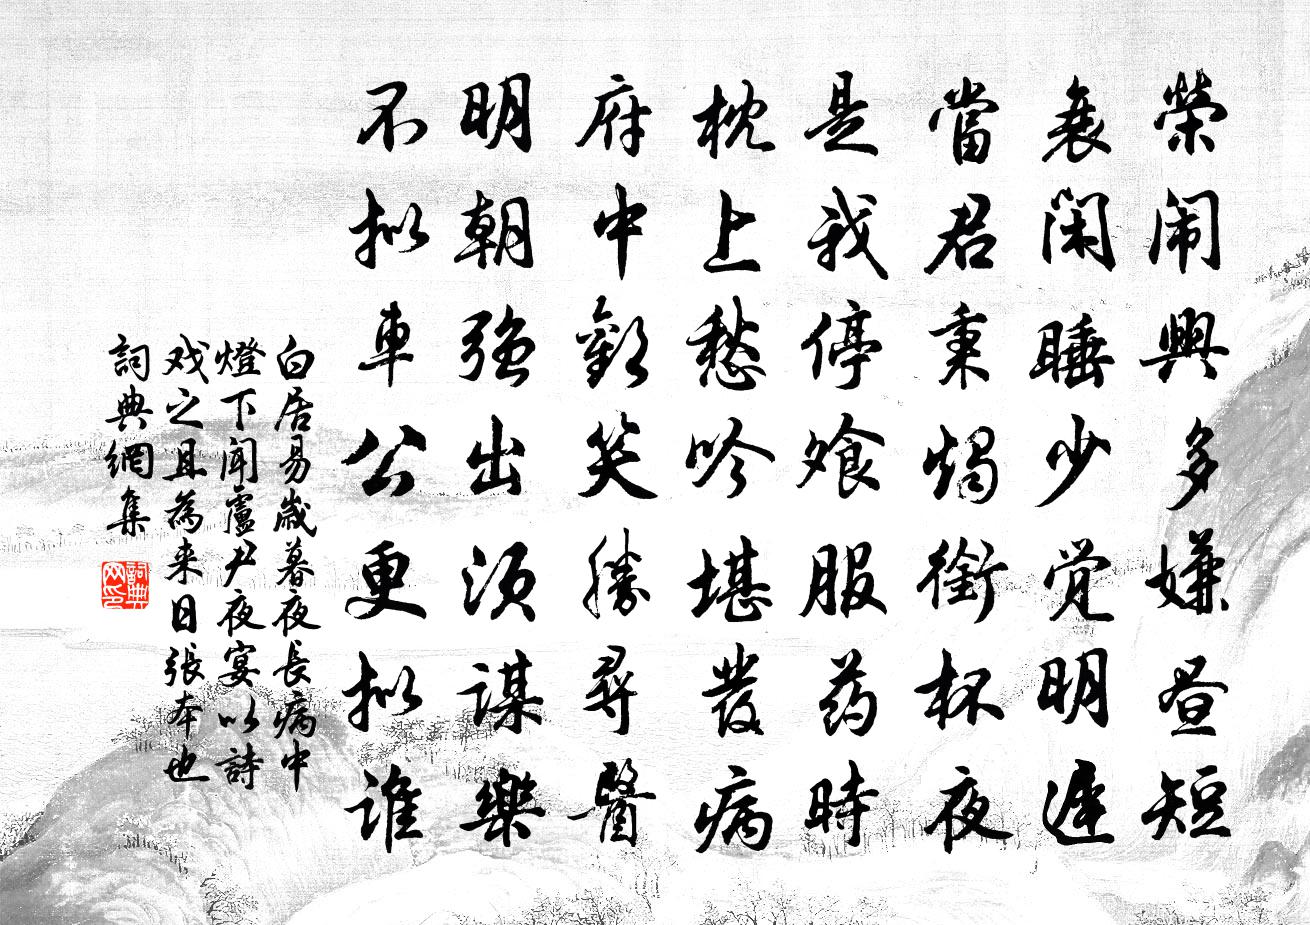 榮闹興多嫌昼短
衰闲睡少觉明遲
當君秉燭銜杯夜
是我停飧服药時
枕上愁吟堪發病
府中歡笑勝尋醫
明朝强出须謀樂
不拟車公更拟谁
白居易歲暮夜長病中
燈下闻盧尹夜宴以詩
戏之且為来日張本也
詞典網集
詞典
网印